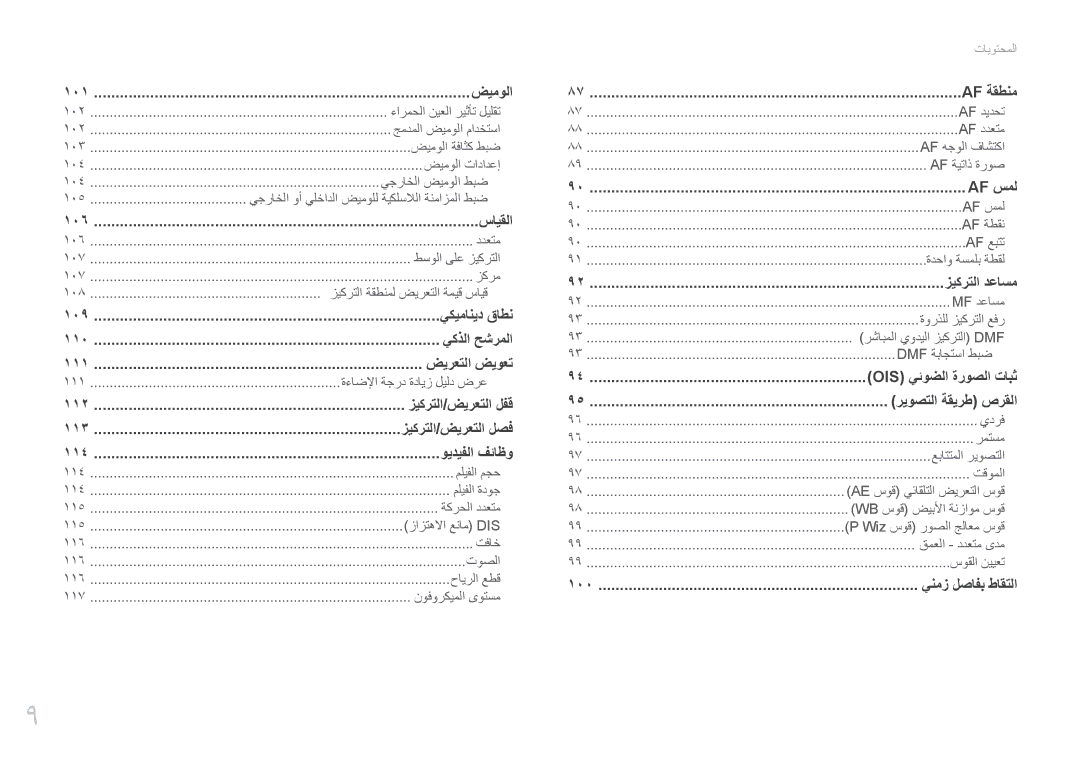 المحتويات
منطقة AF ........ ٨٧
تحديد AF ........ ٨٧
متعدد AF ........ ٨٨
اكتشاف الوجه AF ........ ٨٨
صورة ذاتية AF ........ ٨٩
لمس AF ........ ٩٠
لمس AF ........ ٩٠
نقطة AF ........ ٩٠
تتبع AF ........ ٩٠
لقطة بلمسة واحدة ........ ٩١
مساعد التركيز ........ ٩٢
مساعد MF ........ ٩٢
رفع التركيز للذروة ........ ٩٣
DMF (التركيز اليدوي المباشر) ........ ٩٣
ضبط استجابة DMF ........ ٩٣
ثبات الصورة الضوئي (OIS) ........ ٩٤
القرص (طريقة التصوير) ........ ٩٥
فردي ........ ٩٦
مستمر ........ ٩٦
التصوير المتتابع ........ ٩٧
الموقت ........ ٩٧
قوس التعريض التلقائي (قوس AE) ........ ٩٨
قوس موازنة الأبيض (قوس WB) ........ ٩٨
قوس معالج الصور (قوس P Wiz) ........ ٩٩
مدى متعدد - العمق ........ ٩٩
تعيين القوس ........ ٩٩
التقاط بفاصل زمني ........ ١٠٠
الوميض ........ ١٠١
تقليل تأثير العين الحمراء ........ ١٠٢
استخدام الوميض المدمج ........ ١٠٢
ضبط كثافة الوميض ........ ١٠٣
إعدادات الوميض ........ ١٠٤
ضبط الوميض الخارجي ........ ١٠٤
ضبط المزامنة اللاسلكية للوميض الداخلي أو الخارجي ........ ١٠٥
القياس ........ ١٠٦
متعدد ........ ١٠٦
التركيز على الوسط ........ ١٠٧
مركز ........ ١٠٧
قياس قيمة التعريض لمنطقة التركيز ........ ١٠٨
نطاق ديناميكي ........ ١٠٩
المرشح الذكي ........ ١١٠
تعويض التعريض ........ ١١١
عرض دليل زيادة درجة الإضاءة ........ ١١١
قفل التعريض/التركيز ........ ١١٢
فصل التعريض/التركيز ........ ١١٣
وظائف الفيديو ........ ١١٤
حجم الفيلم ........ ١١٤
جودة الفيلم ........ ١١٤
متعدد الحركة ........ ١١٥
DIS (مانع الاهتزاز) ........ ١١٥
خافت ........ ١١٦
الصوت ........ ١١٦
قطع الرياح ........ ١١٦
مستوى الميكروفون ........ ١١٧
٩